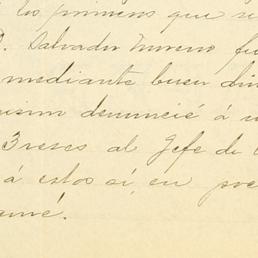 los primeros que
D. Salvador Moreno fu
mediante buen din
denuncié á u
3 reses al Jefe de
á estos sí, en poc